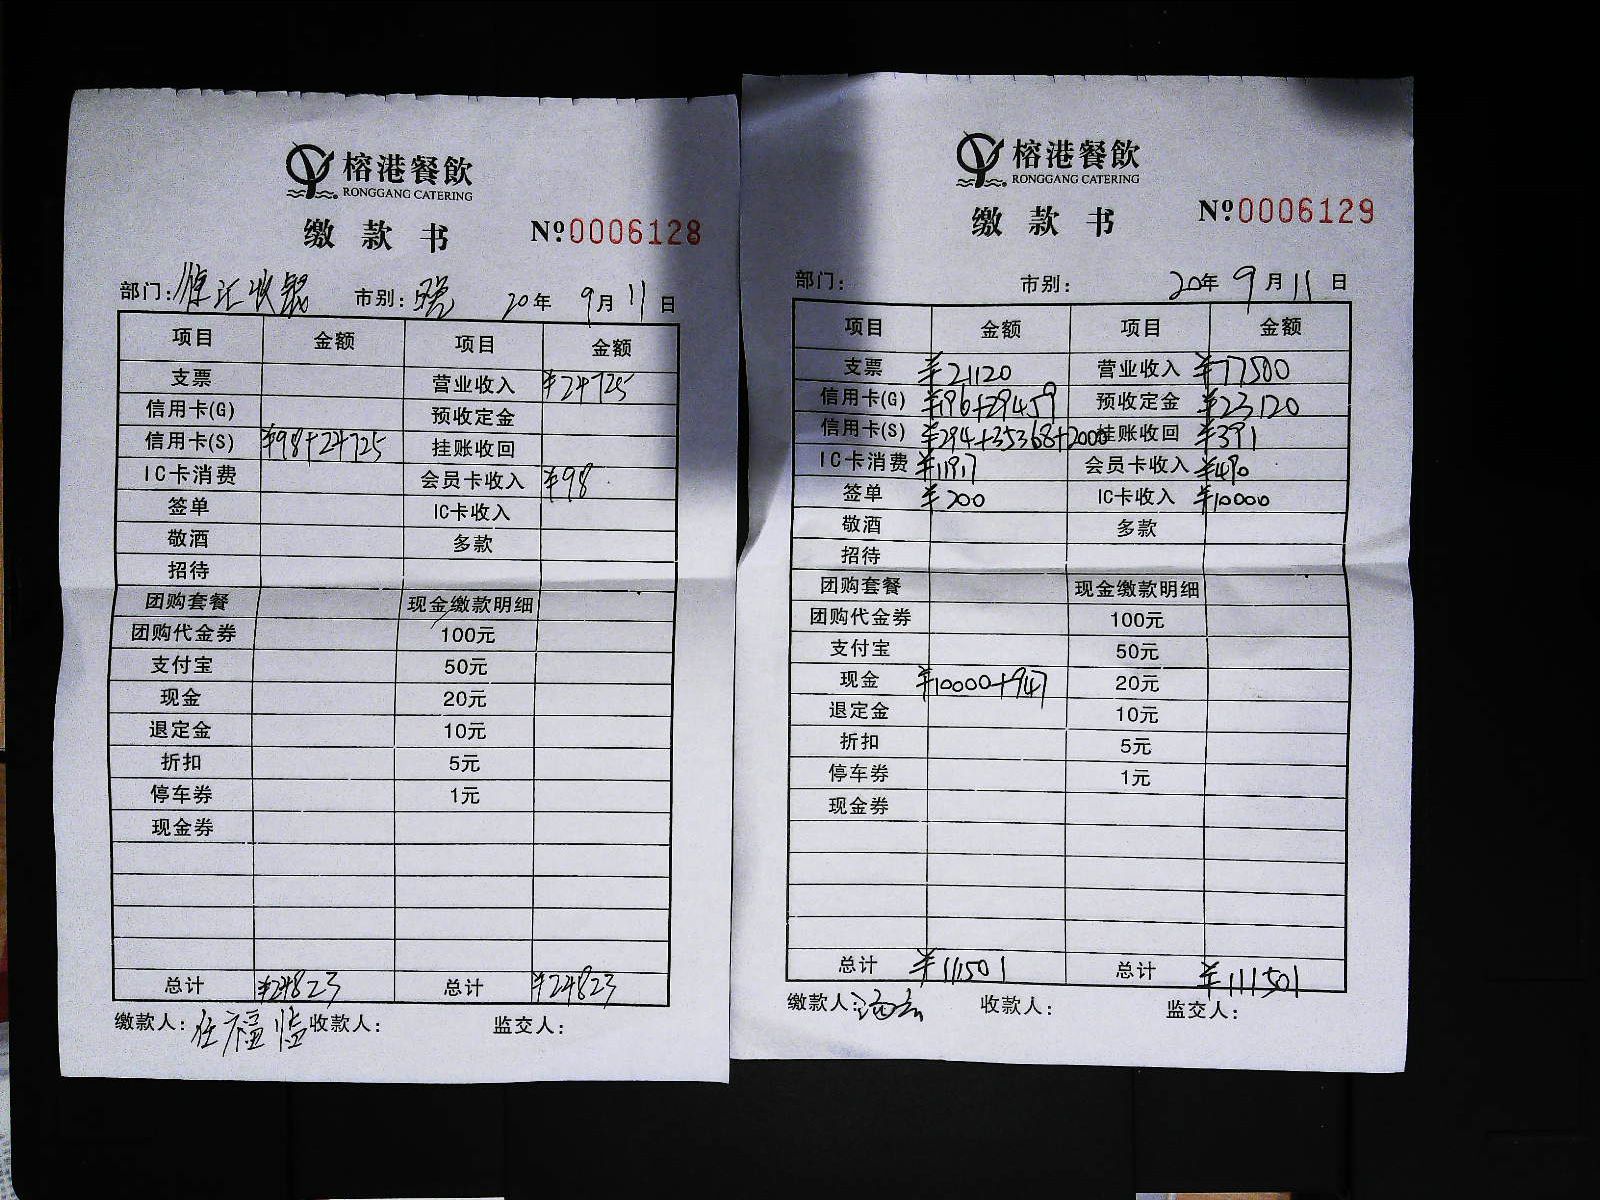 榕港餐飲
RONGGANG CATERING
缴款书 Nº0006128
部门: 收银 市别: 20年 9月 11日
项目 金额 项目 金额
支票 营业收入 ¥24725
信用卡(G) 预收定金
信用卡(S) ¥98+24725 挂账收回
IC卡消费 会员卡收入 ¥98
签单 IC卡收入
敬酒 多款
招待
团购套餐 现金缴款明细
团购代金券 100元
支付宝 50元
现金 20元
退定金 10元
折扣 5元
停车券 1元
现金券
总计 ¥24823 总计 ¥24823
缴款人: 任福临 收款人: 监交人:
榕港餐飲
RONGGANG CATERING
缴款书 Nº0006129
部门: 市别: 20年 9月 11日
项目 金额 项目 金额
支票 ¥21120 营业收入 ¥77500
信用卡(G) ¥196+29459 预收定金 ¥23120
信用卡(S) ¥294+35368+2000 挂账收回 ¥391
IC卡消费 ¥11917 会员卡收入 ¥490
签单 ¥200 IC卡收入 ¥10000
敬酒 多款
招待
团购套餐 现金缴款明细
团购代金券 100元
支付宝 50元
现金 ¥10000+947 20元
退定金 10元
折扣 5元
停车券 1元
现金券
总计 ¥111501 总计 ¥111501
缴款人: 收款人: 监交人: